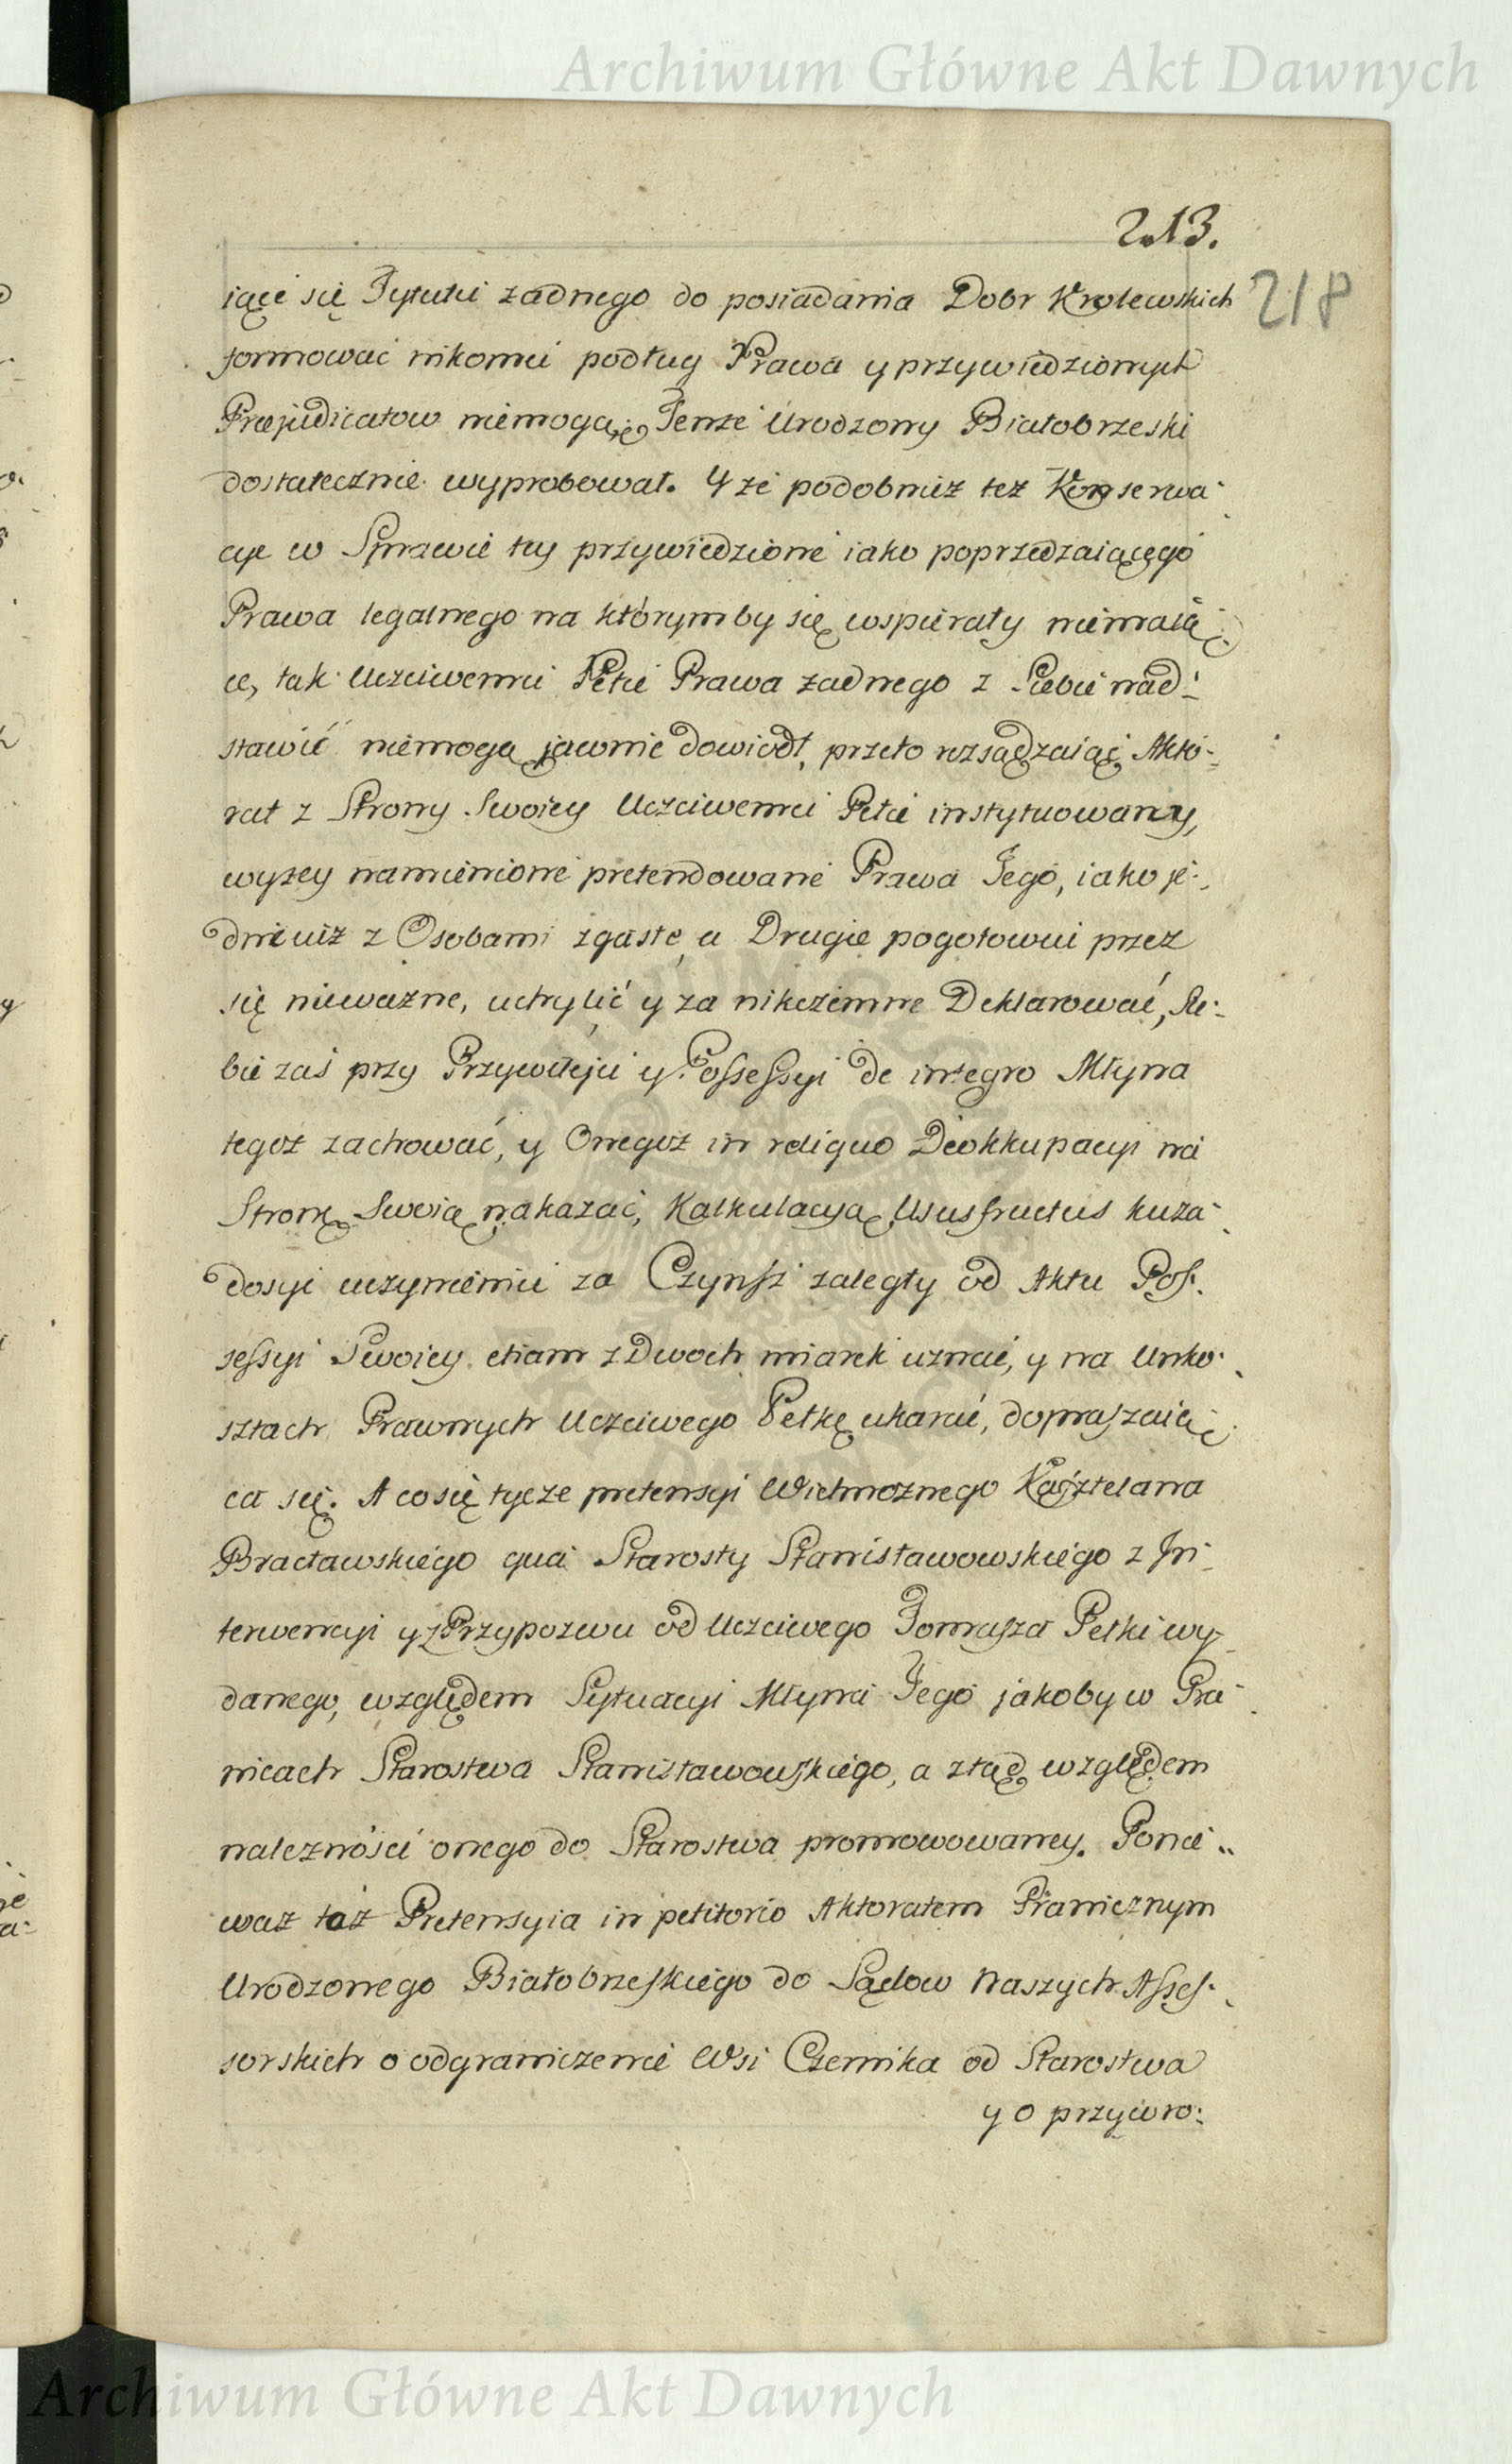 Archiwum Główne Akt Dawnych
213.
218
iące się Tytułu żadnego do posiadania Dobr Krolewskich
formować nikomu podług Prawa y przywiedzionych
Præjudicatow niemogące, Tenże Urodzony Białobrzeski
dostatecznie wyprobował. Y że podobnież też Konserwa-
cye w Sprawie tey przywiedzione iako poprzedzaiącego
Prawa legalnego na którymby się wspierały niemaią-
ce, tak Uczciwemu Petce Prawa żadnego z Siebie nad-
stawić niemogą jawnie dowiodł, przeto rozsądzaiąc Akto-
rat z Strony Swoiey Uczciwemu Petce instytuowany,
wyżey namienione pretendowane Prawa Jego, iako je-
dne iuż z Osobami zgasłe, a Drugie pogotowiu przez
się nieważne, uchylić y za nikczemne Deklarować, Sie-
bie zaś przy Przywileju y Possessyi de integro Młyna
tegoż zachować, y Onegoż in reliquo Deokkupacyi na
Stronę Swoią nakazać, Kalkulacyą Ususfructus ku za-
dosyć uczynieniu za Czynsz zaległy od Aktu Pos-
sessyi Swoiey etiam z Dwoch miarek uznać, y na Unko-
sztach Prawnych Uczciwego Petkę ukarać, dopraszaią-
ca się. A co się tycze pretensyi Wielmożnego Kasztelana
Bracławskiego qua Starosty Stanisławowskiego z In-
terwencyi y z Przypozwu od Uczciwego Tomasza Petki wy-
danego, względem Sytuacyi Młyna Jego jakoby w Gra-
nicach Starostwa Stanisławowskiego, a ztąd względem
należności onego do Starostwa promowowaney. Ponie-
waż taż Pretensyia in petitorio Aktoratem Granicznym
Urodzonego Białobrzeskiego do Sądow Naszych Asses-
sorskich o odgraniczenie Wsi Czernika od Starostwa
y o przywro-
Archiwum Główne Akt Dawnych